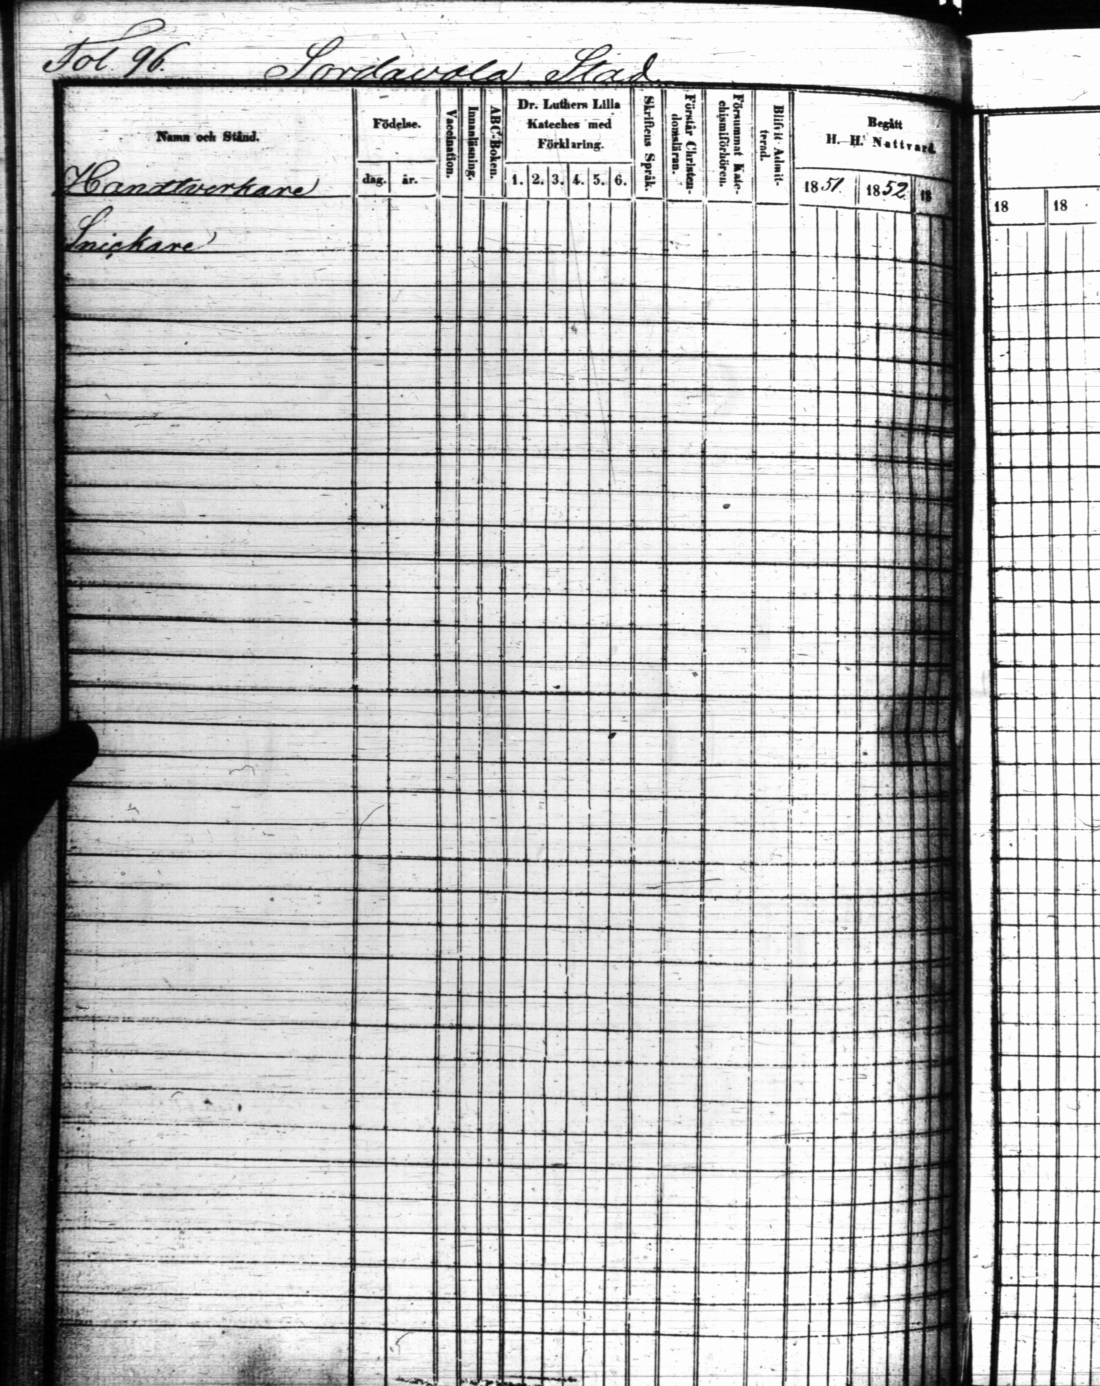 Fol. 96. Sordavala Stad
Namn och Stånd.
Födelse.
dag. år.
Vaccination.
Innanläsning.
ABC-Boken.
Dr. Luthers Lilla
Kateches med
Förklaring.
1. 2. 3. 4. 5. 6.
Skriftens Språk.
Förstår Christen-
domsläran.
Försummat Kate-
chismiförhören.
Blifvit Admit-
terad.
Begått
H. H. Nattvard.
1851. 1852. 18
18 18
Handtverkare
Snickare